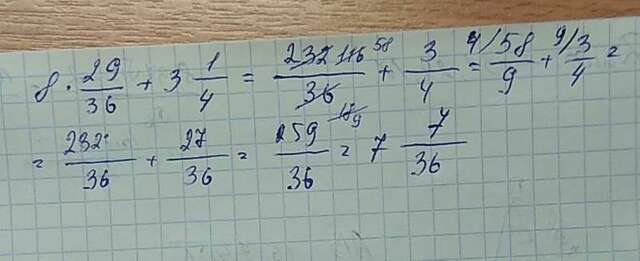 8 · 29/36 + 3 1/4 = 232 116 58/36 18 9 + 3/4 = 4/58/9 + 9/3/4 =
= 232/36 + 27/36 = 259/36 = 7 7/36